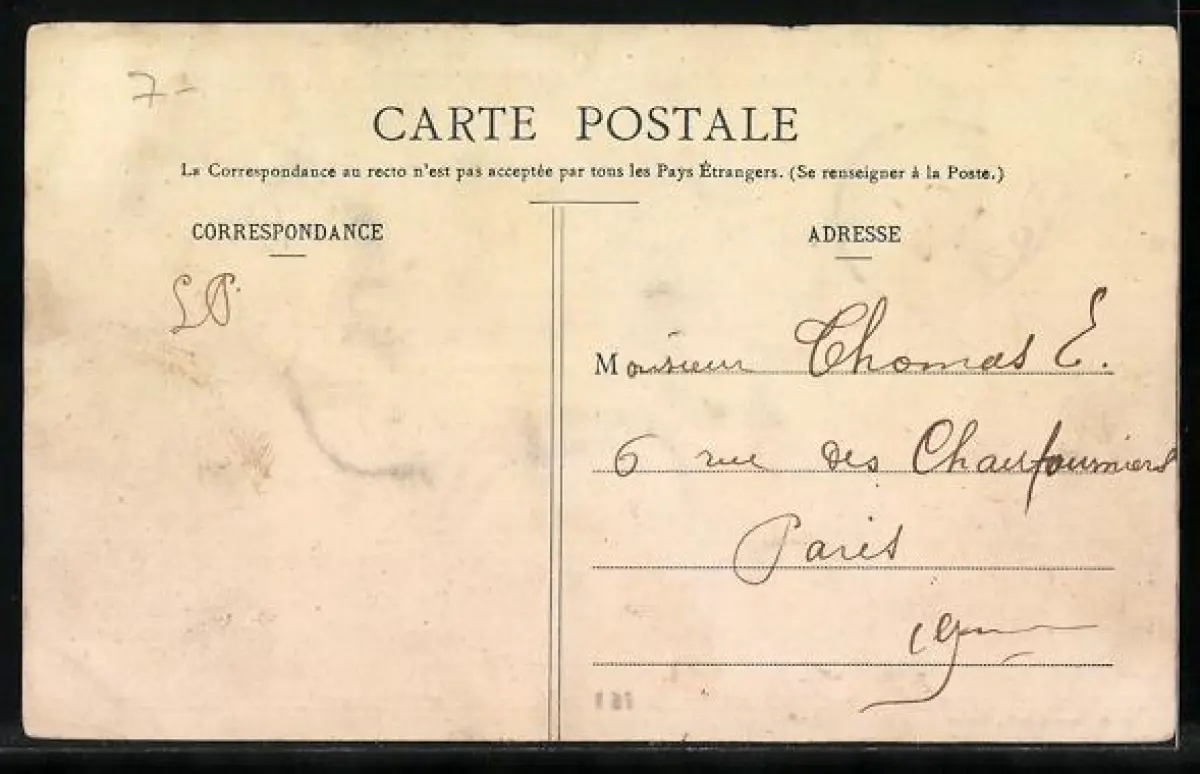 7-
CARTE POSTALE
La Correspondance au recto n'est pas acceptée par tous les Pays Étrangers. (Se renseigner à la Poste.)
CORRESPONDANCE
LP.
ADRESSE
Monsieur Thomas E.
6 rue des Chaufourniers
Paris